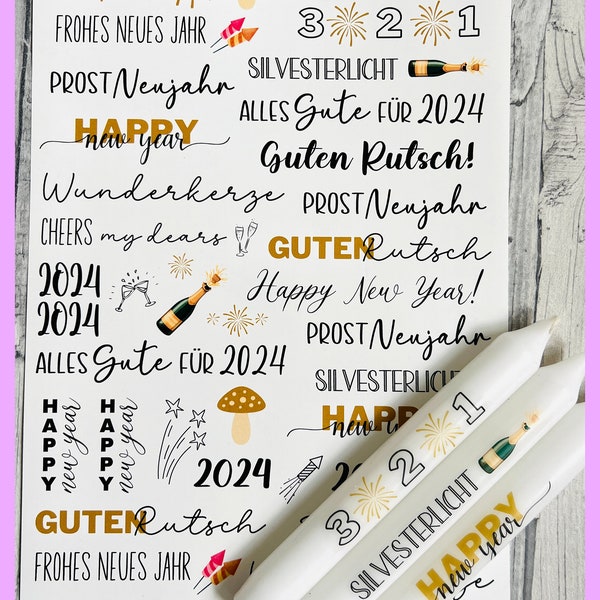 FROHES NEUES JAHR
PROST Neujahr
HAPPY
new year
Wunderkerze
CHEERS my dears
2024
2024
ALLES Gute FÜR 2024
HAPPY
new year
HAPPY
new year
2024
GUTEN Rutsch
FROHES NEUES JAHR
3 2 1
SILVESTERLICHT
ALLES Gute FÜR 2024
Guten Rutsch!
PROST Neujahr
GUTEN Rutsch
Happy New Year!
PROST Neujahr
SILVESTERLICHT
HAPPY
new year
3 2 1
SILVESTERLICHT
HAPPY
new year